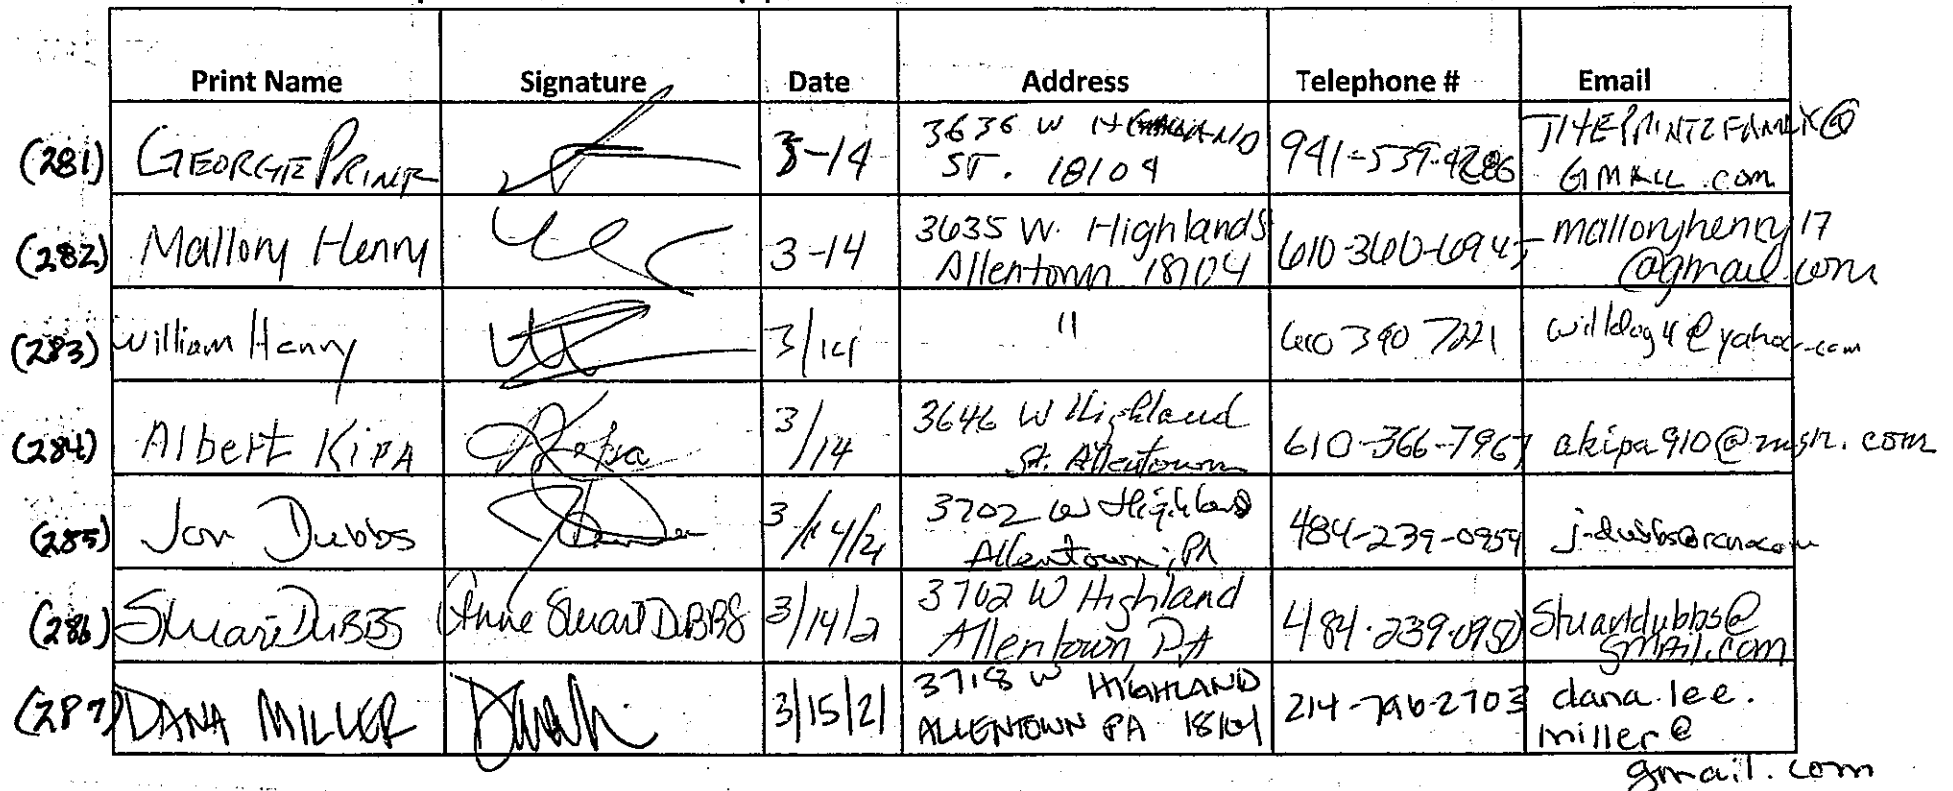 Print Name Signature Date Address Telephone # Email
(281) GEORGE PRINTZ 3-14 3636 W HIGHLAND ST. 18104 941-539-4286 THEPRINTZFAMILY@ GMAIL.com
(282) Mallory Henry 3-14 3635 W. Highlands Allentown 18104 610-360-6945 malloryhenry17 @gmail.com
(283) William Henry 3/14 " 610 390 7221 willdog4@yahoo.com
(284) Albert KIPA AKipa 3/14 3646 W Highland St. Allentown 610-366-7967 akipa910@msn.com
(285) Jon Dubbs 3/14/21 3702 W Highland Allentown, PA 484-239-0959 j-dubbs@rcn.com
(286) Stuart DUBBS Anne Stuart DUBBS 3/14/2 3702 W Highland Allentown PA 484.239.0950 Stuartdubbs@ gmail.com
(287) DANA MILLER 3/15/21 3718 W HIGHLAND ALLENTOWN PA 18104 214-796-2703 dana.lee. miller@ gmail.com